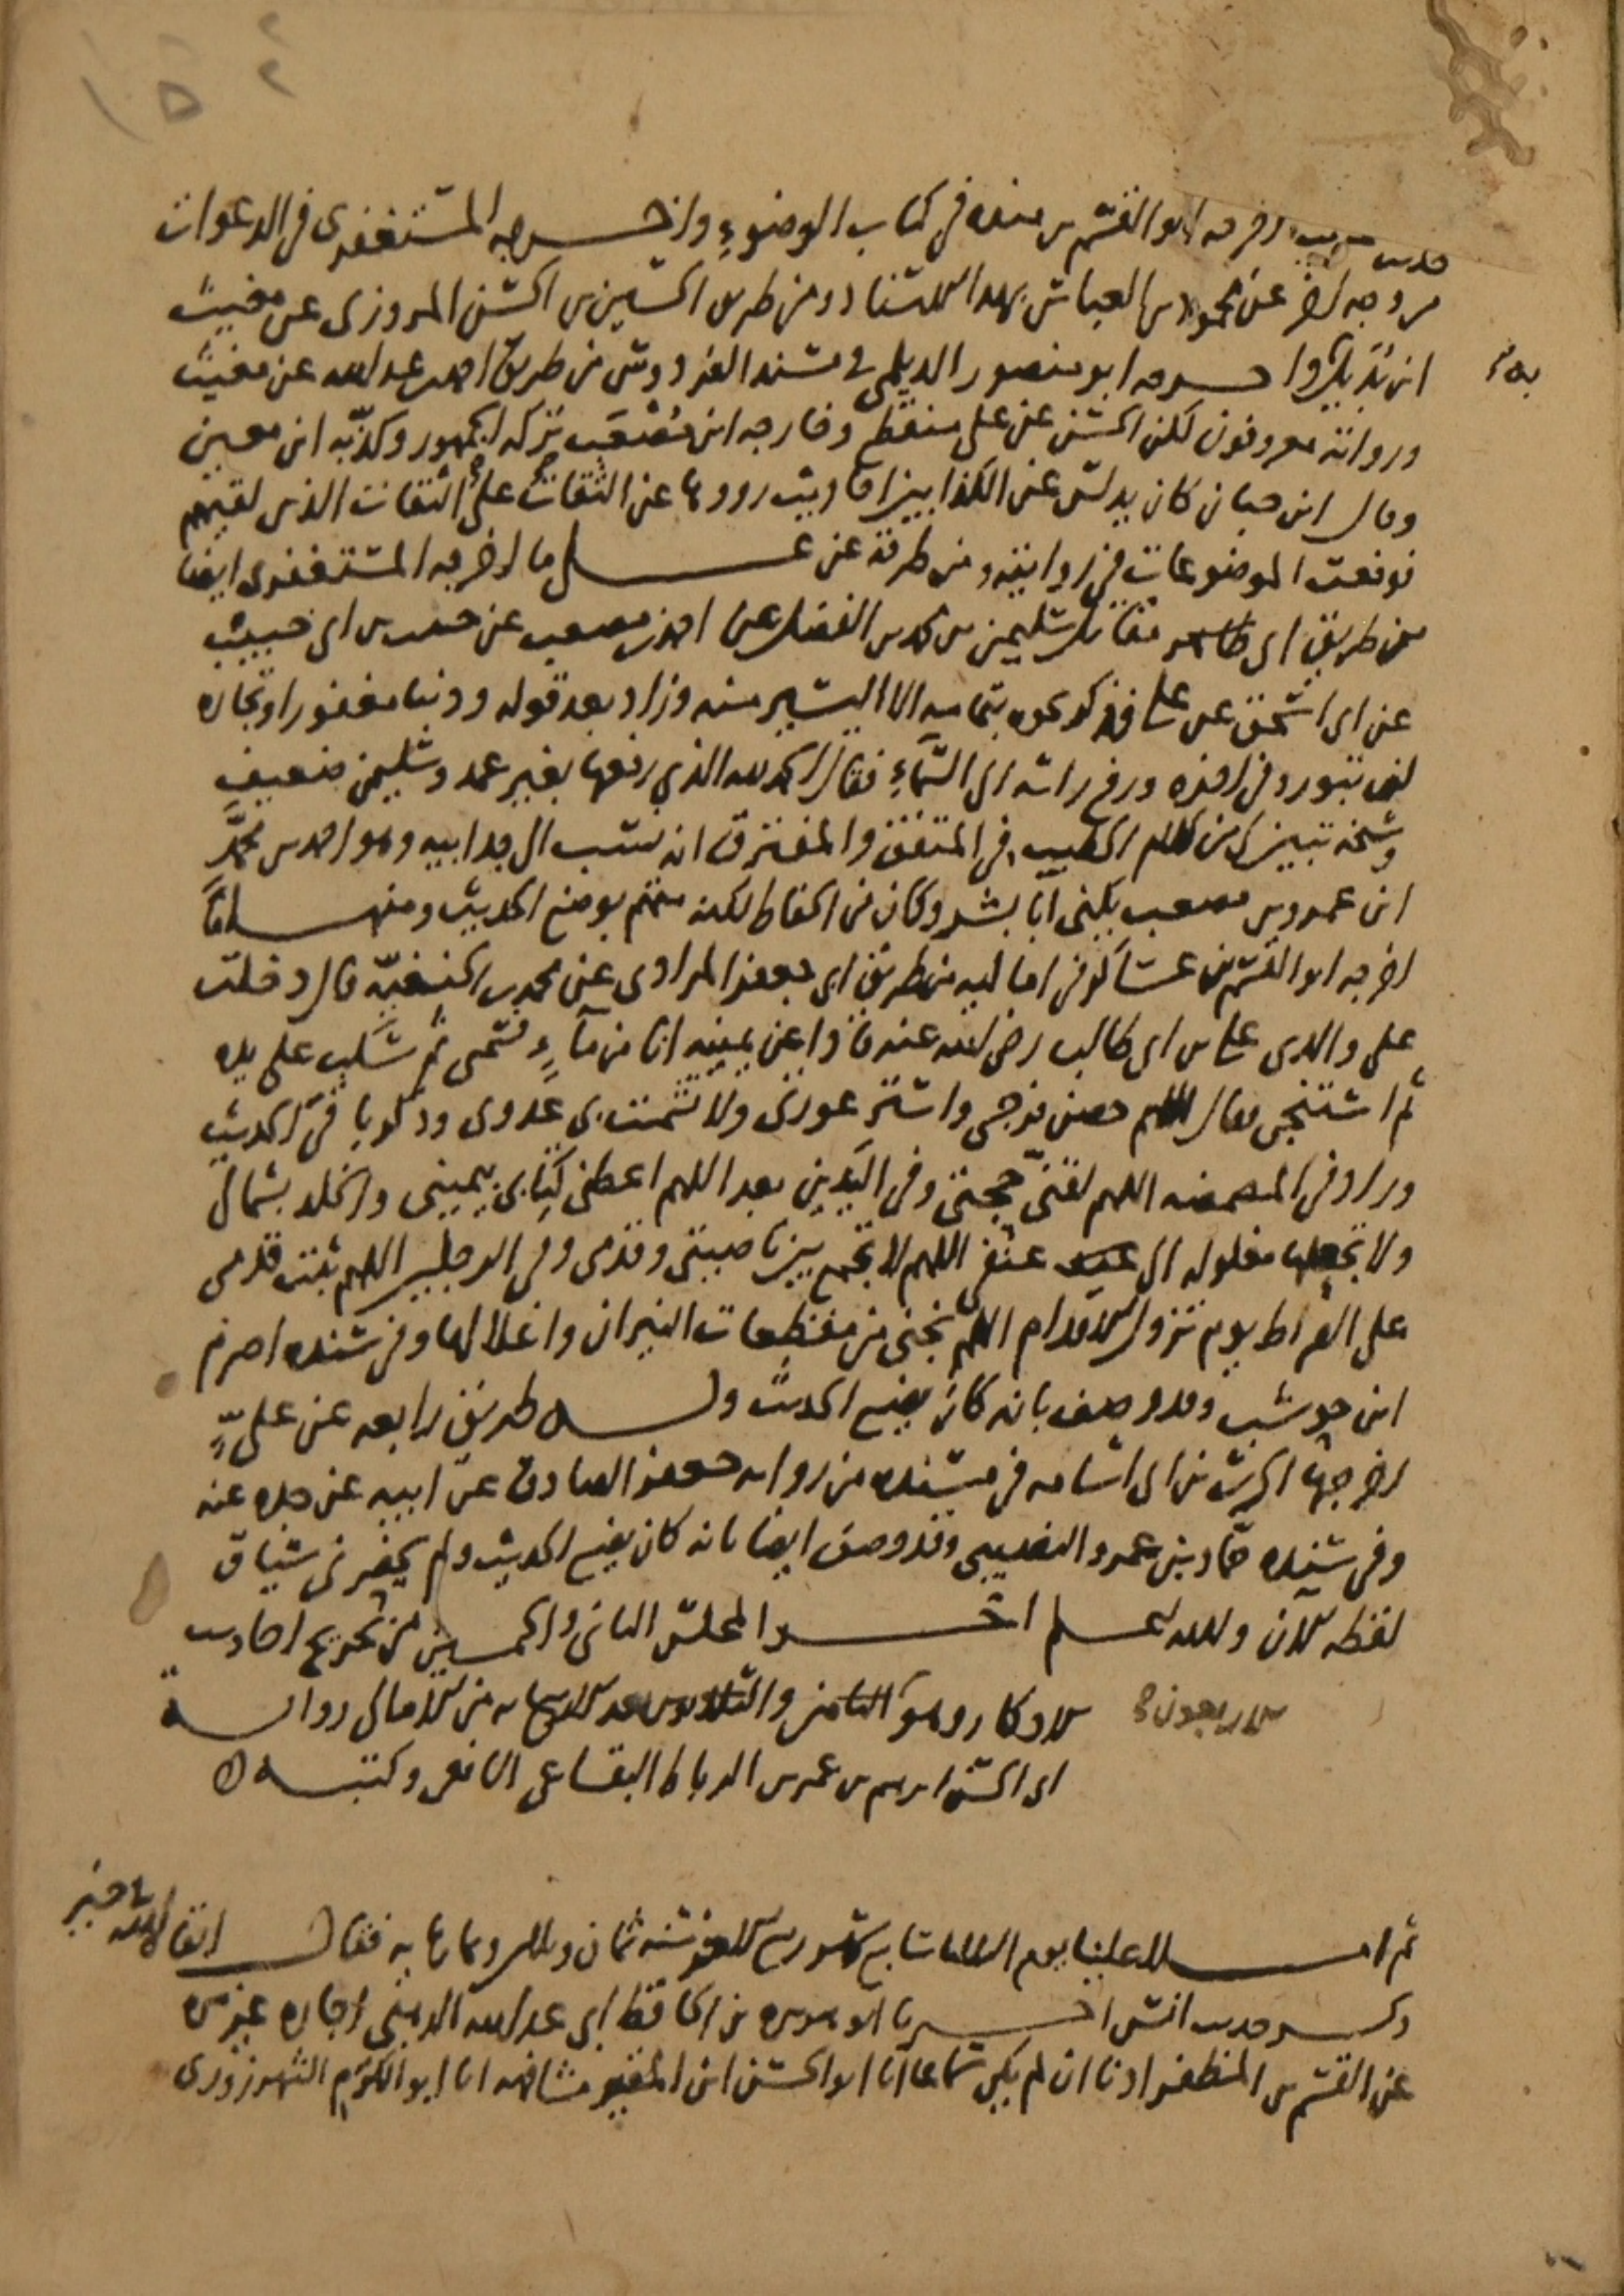 ١٥٤
حديث غريب اخرجه ابو القسم بن منده في كتاب الوضوء واخرجه المستغفري في الدعوات
من وجه اخر عن محمود بن العباس بهذا الاسناد ومن طريق الحسين بن الحسن المروزي عن مغيث
ابن بديل واخرجه ابو منصور الديلمي في مسند الفردوس من طريق احمد بن عبد الله عن مغيث
ورواته معروفون لكن الحسن عن علي منقطع وخارجه ابن مصعب تركه الجمهور وكذبه ابن معين
وقال ابن حبان كان يدلس عن الكذابين احاديث رووها عن الثقات على الثقات الذين لقيهم
فوقعت الموضوعات في روايته ومن طرقه عن علي ما اخرجه المستغفري ايضا
من طريق ابي مقاتل سليمن بن محمد بن الفضل عن احمد بن مصعب عن حبيب بن ابي حبيب
عن ابي اسحق عن علي فذكر نحوه بتمامه الا اليسير منه وزاد بعد قوله وذنبا مغفورا وتجاره
لن تبور وفي اخره ورفع راسه الى السماء فقال الحمد لله الذي رفعها بغير عمد وسليمن ضعيف
وشيخه تبين لي من كلام الخطيب في المتفق والمفترق انه نسب الى جد ابيه وهو احمد بن محمد
ابن عمرو بن مصعب يكنى ابا بشر وكان من الحفاظ لكنه متهم بوضع الحديث ومنها ما
اخرجه ابو القسم بن عساكر في اماليه من طريق ابي جعفر المرادي عن محمد بن الحنفية قال دخلت
على والدي علي بن ابي طالب رضي الله عنه فاذا عن يمينه انا من ماء فسمى ثم سكب على يده
ثم استنجى وقال اللهم حصن فرجي واستر عورتي ولا تشمت بي عدوي وذكر باقي الحديث
وزاد في المضمضه اللهم لقني حجتي وفي اليدين بعد اللهم اعطني كتابي بيميني والخلد بشمالي
ولا تجعلها مغلوله الى عنقي اللهم لا تجمع بين ناصيتي وقدمي وفي الرجلين اللهم ثبت قدمي
على الصراط يوم تزول الاقدام اللهم نجني من مفظعات النيران واغلالها وفي سنده اصرم
ابن حوشب وقد وصف بانه كان يضع الحديث وله طريق رابعه عن علي
اخرجها الحرث بن ابي اسامه في مسنده من روايه جعفر الصادق عن ابيه عن جده عنه
وفي سنده حماد بن عمرو النصيبي وقد وصف ايضا بانه كان يضع الحديث ولم يحضرني سياق
لفظه الان والله اعلم اخر المجلس الثاني والخمسين من تخريج احاديث
الاذكار وهو الثامن والثلاثون بعد الاربعمايه من الامالي روايــة الاربعون
ابي الحسن ابرهيم بن عمر بن الرباط البقاعي الشافعي وكتبــه
ثم املى علينا يوم الثلاثا سابع شهر ربيع الاخر سنه ثمان وثلاثين وثمانمايه فقال
ذكر حديث انس اخبرنا ابو هريره بن الحافظ ابي عبد الله الذهبي اجازه غير مره
عن القسم بن المظفر اذنا ان لم يكن سماعا انا ابو الحسن ابن المقير مشافهه انا ابو الكرم الشهرزوري